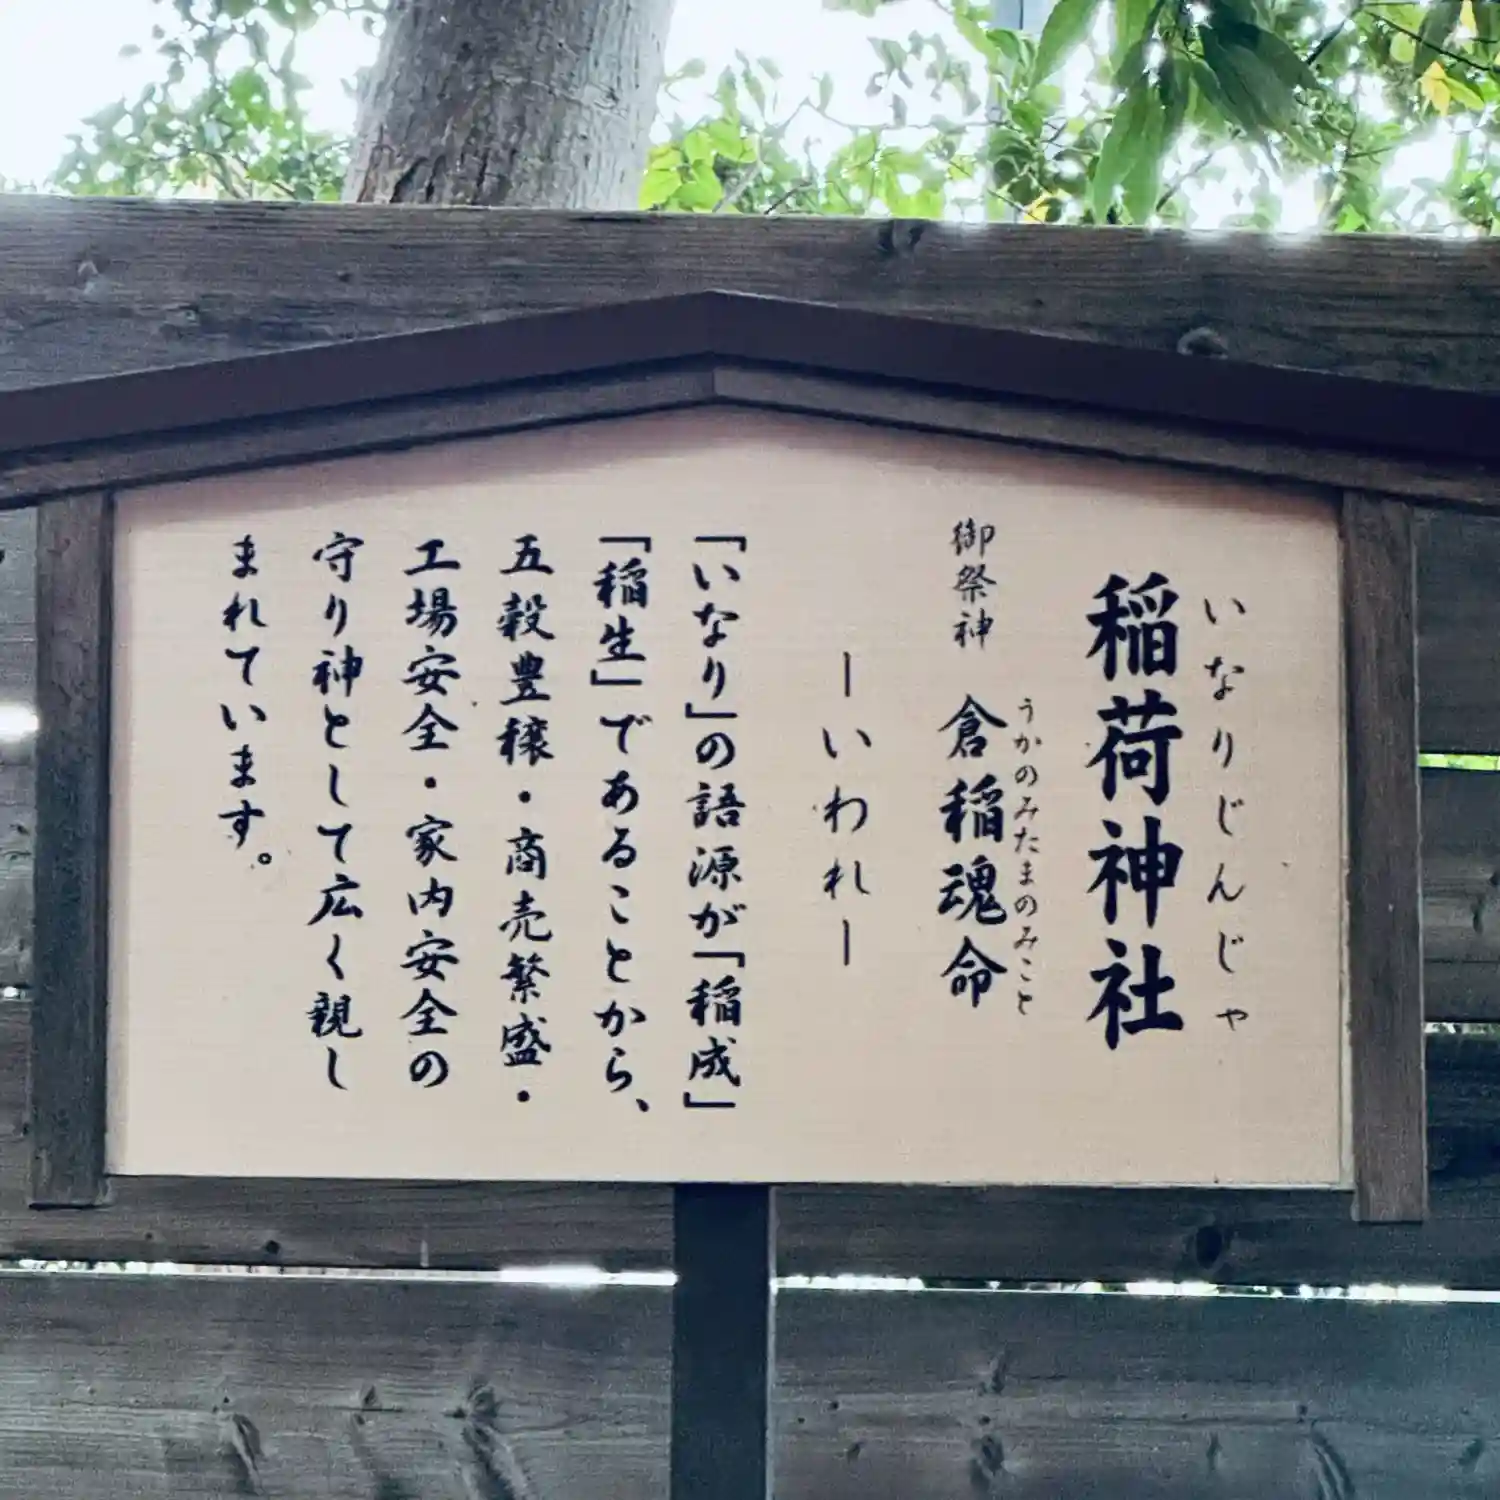 いなりじんじゃ
稲荷神社
うかのみたまのみこと
御祭神 倉稲魂命
ーいわれー
「いなり」の語源が「稲成」
「稲生」であることから、
五穀豊穣・商売繁盛・
工場安全・家内安全の
守り神として広く親し
まれています。